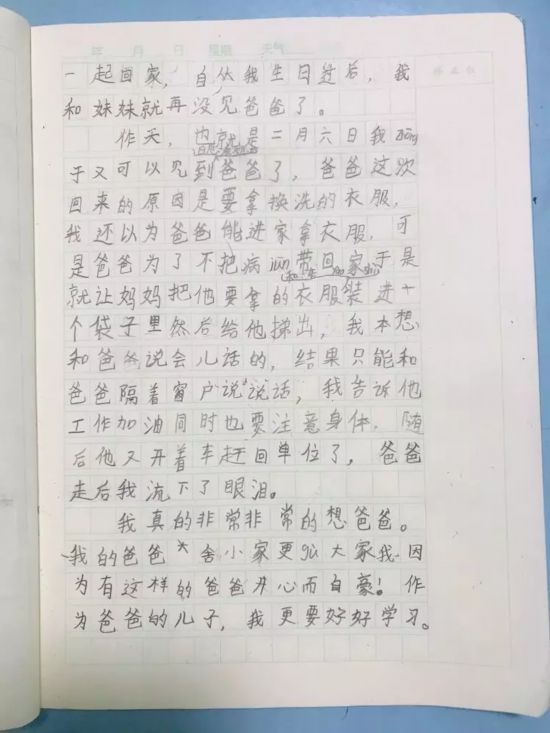 年 月 日 星期 天气
一起回家，自从我生日过后，我
和妹妹就再没见爸爸了。
作天，也就是二月六日我zhōng
于又可以见到爸爸了，爸爸这次
回来的原因是要拿换洗的衣服，
我还以为爸爸能进家拿衣服，可
是爸爸为了不把病 带回家于是
就让妈妈把他要拿的衣服装进十
个袋子里然后给他 出，我本想
和爸爸说会儿话的，结果只能和
爸爸隔着窗户说说话，我告诉他
工作加油同时也要注意身体，随
后他又开着车赶回单位了，爸爸
走后我流下了眼泪。
我真的非常非常的想爸爸。
我的爸爸舍小家更gù大家我因
为有这样的爸爸开心而自豪！作
为爸爸的儿子，我更要好好学习。